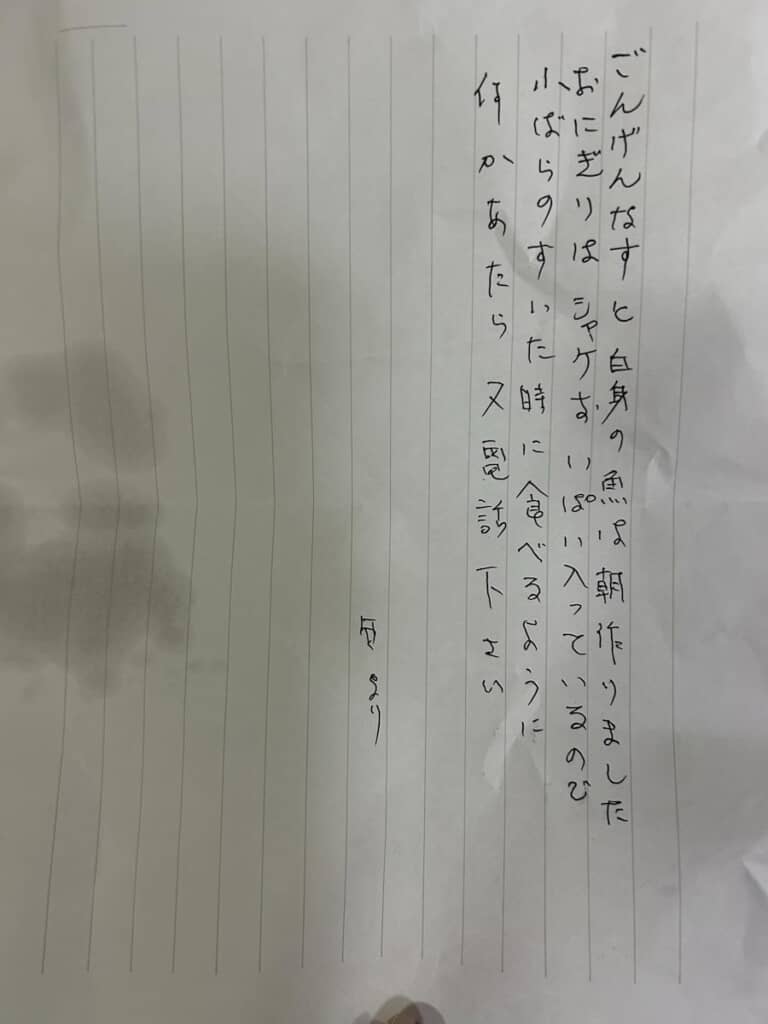 ごんげんなすと白身の魚は朝作りました
おにぎりはシャケがいぱい入っているので
小ばらのすいた時に食べるように
何かあたら又電話下さい
母より